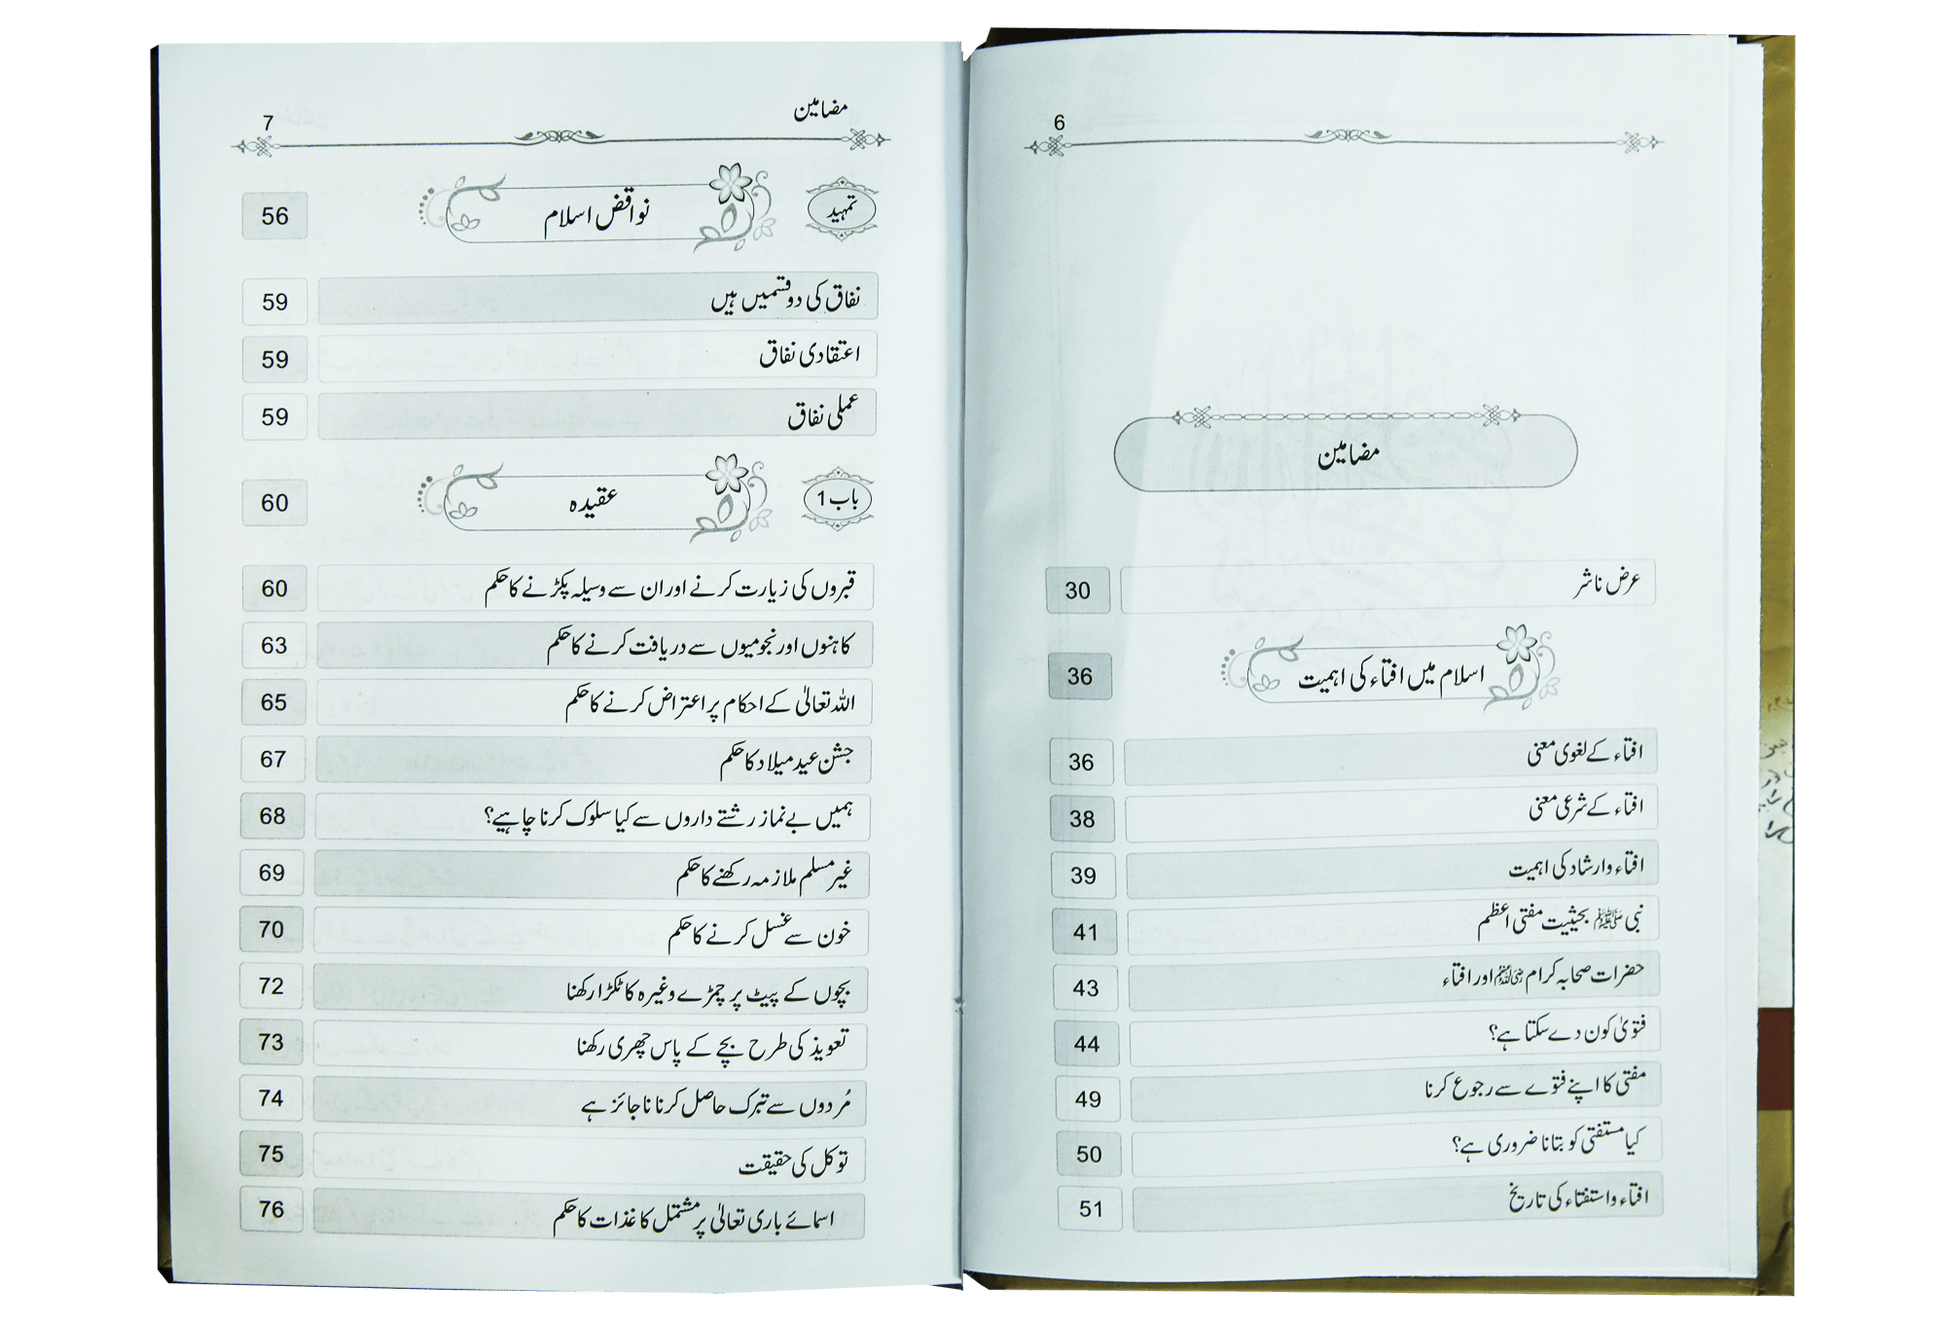 6
مضامین
عرض ناشر 30
اسلام میں افتاء کی اہمیت 36
افتاء کے لغوی معنی 36
افتاء کے شرعی معنی 38
افتاء و ارشاد کی اہمیت 39
نبی ﷺ بحیثیت مفتی اعظم 41
حضرات صحابہ کرام رضی اللہ عنہم اور افتاء 43
فتویٰ کون دے سکتا ہے؟ 44
مفتی کا اپنے فتوے سے رجوع کرنا 49
کیا مستفتی کو بتانا ضروری ہے؟ 50
افتاء و استفتاء کی تاریخ 51
مضامین 7
تمہید نواقض اسلام 56
نفاق کی دو قسمیں ہیں 59
اعتقادی نفاق 59
عملی نفاق 59
باب 1 عقیدہ 60
قبروں کی زیارت کرنے اور ان سے وسیلہ پکڑنے کا حکم 60
کاہنوں اور نجومیوں سے دریافت کرنے کا حکم 63
اللہ تعالیٰ کے احکام پر اعتراض کرنے کا حکم 65
جشن عید میلاد کا حکم 67
ہمیں بے نماز رشتے داروں سے کیا سلوک کرنا چاہیے؟ 68
غیر مسلم ملازمہ رکھنے کا حکم 69
خون سے غسل کرنے کا حکم 70
بچوں کے پیٹ پر چمڑے وغیرہ کا ٹکڑا رکھنا 72
تعویذ کی طرح بچے کے پاس چھری رکھنا 73
مُردوں سے تبرک حاصل کرنا ناجائز ہے 74
توکل کی حقیقت 75
اسمائے باری تعالیٰ پر مشتمل کاغذات کا حکم 76